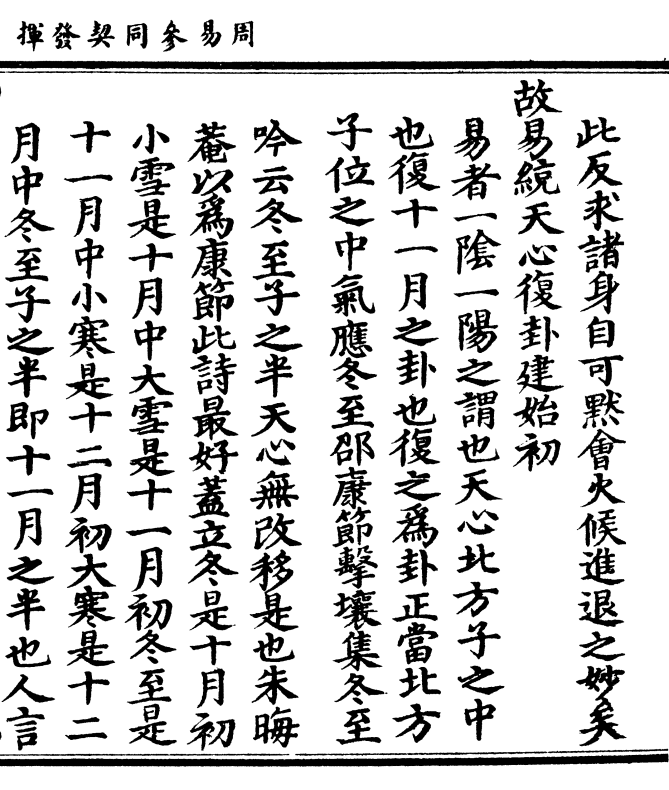 周易參同契發揮
此反求諸身自可黙會火候進退之妙矣
故易統天心復卦建始初
易者一陰一陽之謂也天心北方子之中
也復十一月之卦也復之爲卦正當北方
子位之中氣應冬至邵康節擊壤集冬至
吟云冬至子之半天心無改移是也朱晦
菴以爲康節此詩最好蓋立冬是十月初
小雪是十月中大雪是十一月初冬至是
十一月中小寒是十二月初大寒是十二
月中冬至子之半即十一月之半也人言